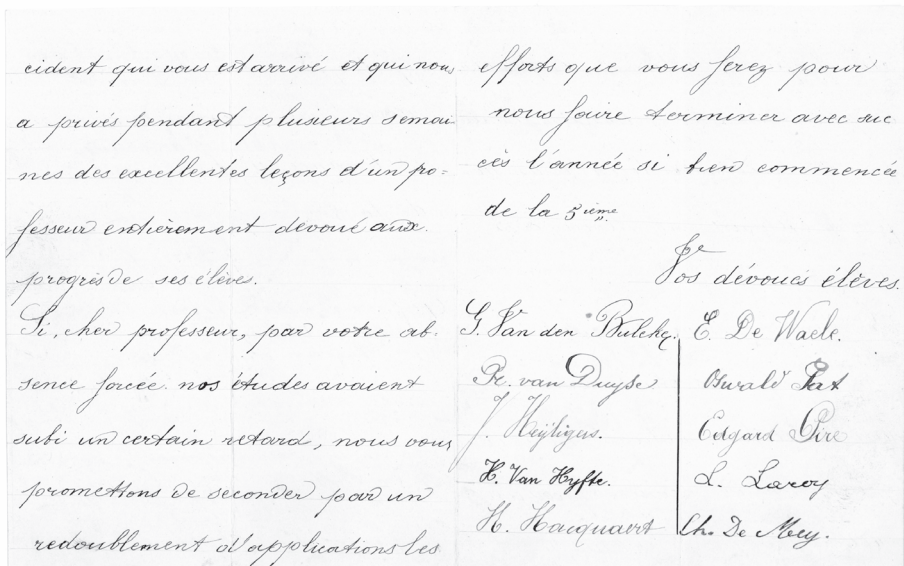 cident qui vous est arrivé et qui nous
a privés pendant plusieurs semai
nes des excellentes leçons d'un pro=
fesseur entièrement dévoué aux
progrès de ses élèves.
Si, cher professeur, par votre ab-
sence forcée nos études avaient
subi un certain retard, nous vous
promettons de seconder par un
redoublement d'applications les
efforts que vous ferez pour
nous faire terminer avec suc
cès l'année si bien commencée
de la 5ième
Vos dévoués élèves.
G. Van den Bulcke.
Pr. van Duyse
J. Heyligers.
H. Van Hyfte.
H. Hacquaert
E. De Waele.
Oswald Pat
Edgard Pire
L. Laroy
Ch. De Mey.